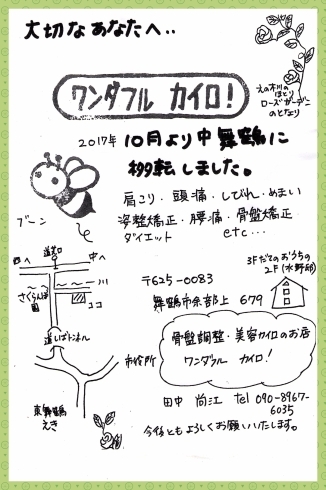 大切なあなたへ..
えの木川の
ほとり
ローズガーデン
のとなり
ワンダフル カイロ!
2017年 10月より中舞鶴に
移転しました。
肩こり・頭痛・しびれ・めまい
姿整矯正・腰痛・骨盤矯正
ダイエット etc...
ブーン
道芝口
西へ
中へ
川
さくらんぼ
園
ココ
道しばトンネル
市役所
東舞鶴
えき
3Fだてのおうちの
2F(水野邸)
〒625-0083
舞鶴市余部上 679
骨盤調整・美容カイロのお店
ワンダフル カイロ!
田中 尚江 tel 090-8967-
6035
今後ともよろしくお願いいたします。